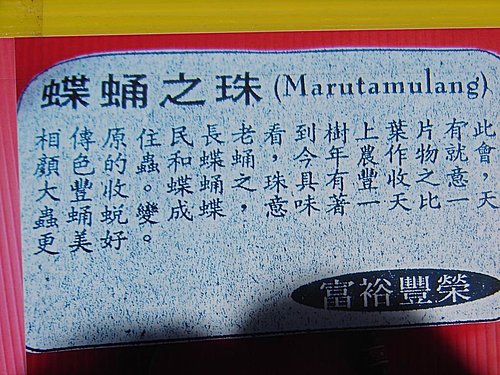 蝶蛹之珠(Marutamulang)
相傳原住民長老看到樹上葉片有此
顏色的蟲和蝶蛹，今年農作物就會，
大豐收。蝶蛹之珠具有豐收之意，
蟲蛹蛻變成蝶，意味著一天比一天
更美好。
富裕豐榮